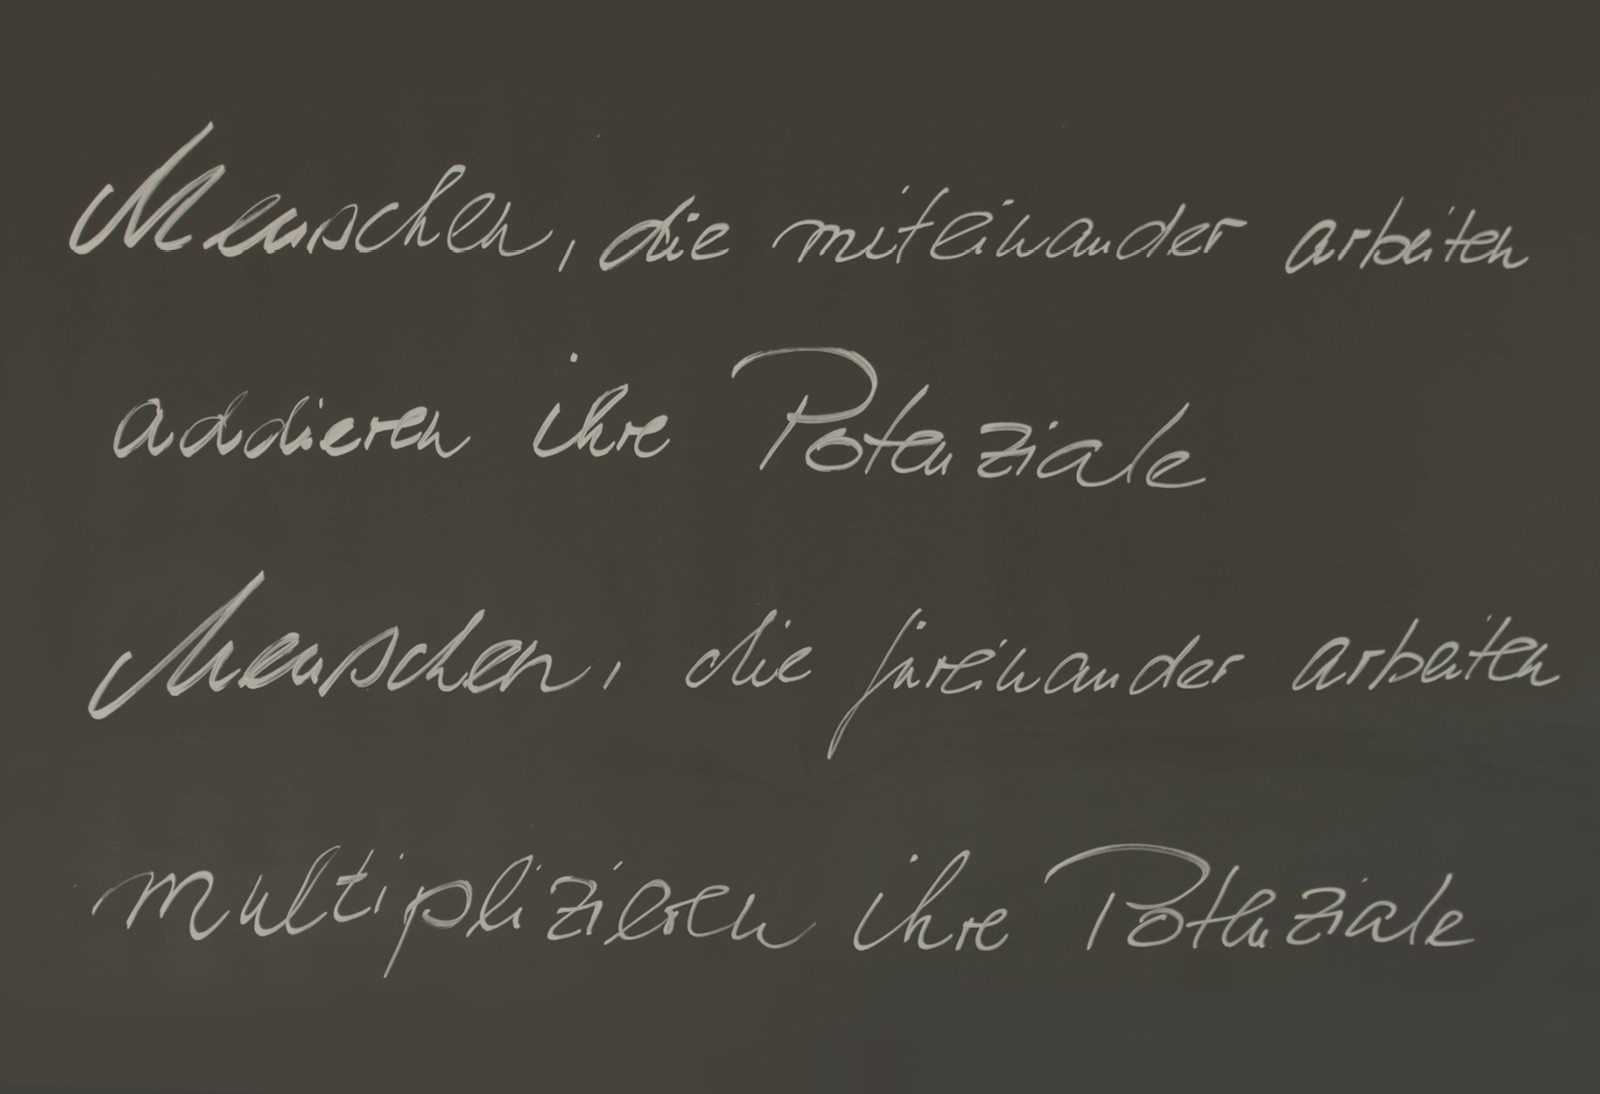 Menschen, die miteinander arbeiten
addieren ihre Potenziale
Menschen, die füreinander arbeiten
multiplizieren ihre Potenziale